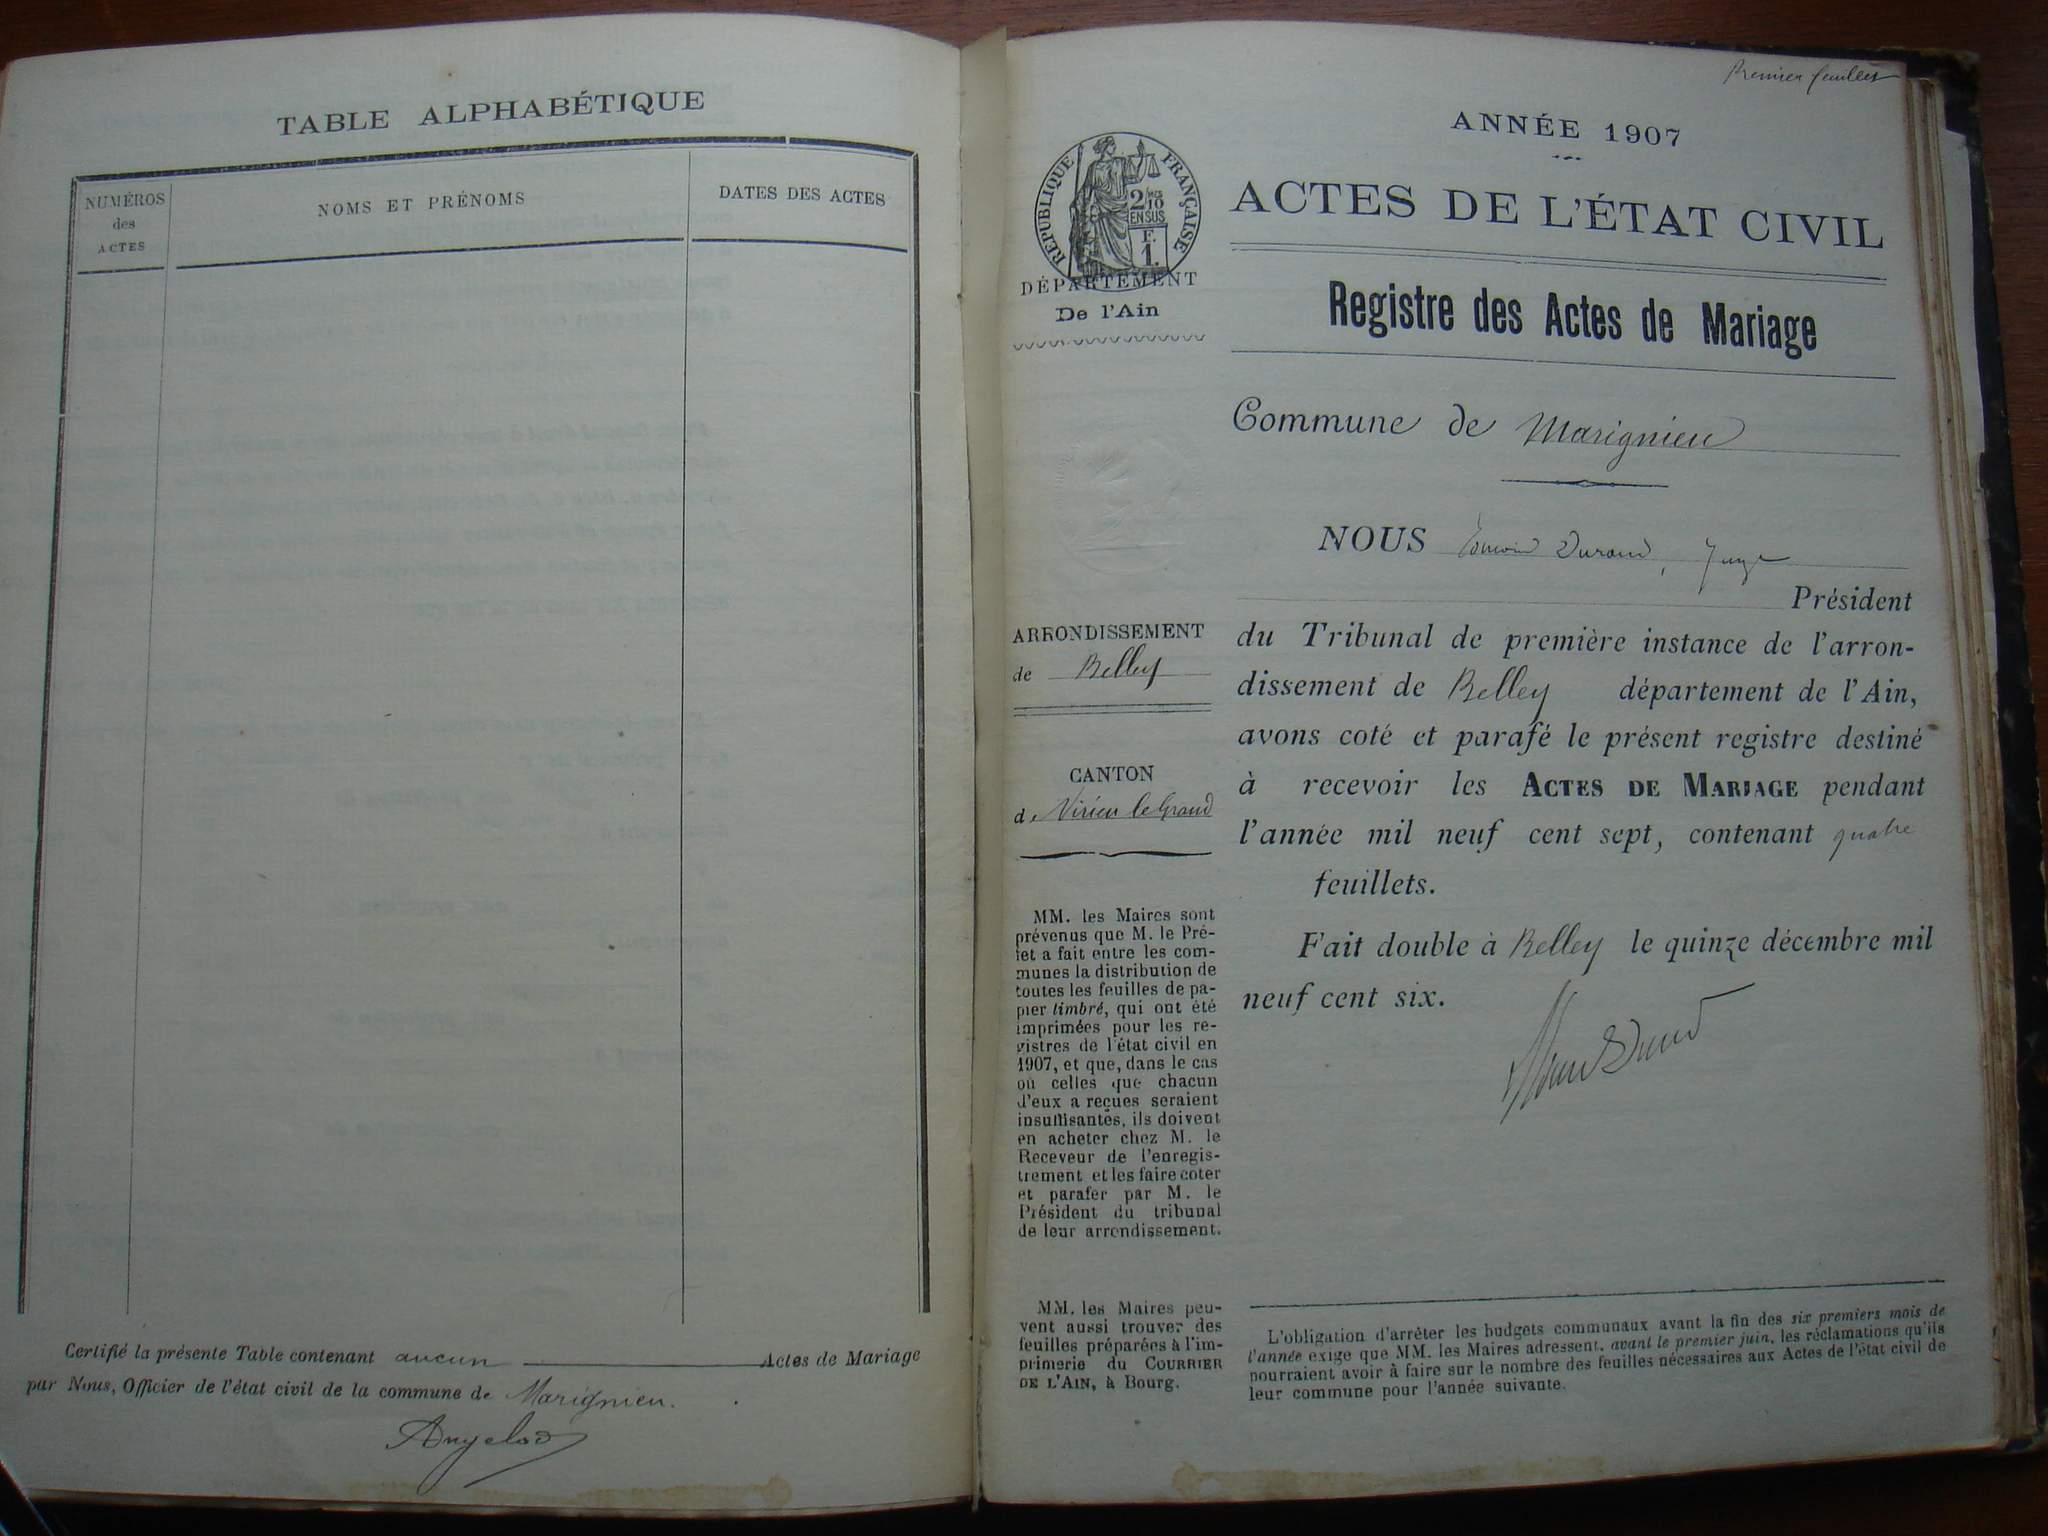 TABLE ALPHABÉTIQUE
NUMÉROS
des
ACTES
NOMS ET PRÉNOMS
DATES DES ACTES
Certifié la présente Table contenant aucun Actes de Mariage
par Nous, Officier de l'état civil de la commune de Marignieu.
Premier feuillet
ANNÉE 1907
RÉPUBLIQUE FRANÇAISE
2/10
EN SUS
F.
1.
DÉPARTEMENT
De l'Ain
ACTES DE L'ÉTAT CIVIL
Registre des Actes de Mariage
Commune de Marignieu
NOUS Durand, Juge
Président
du Tribunal de première instance de l'arron-
dissement de Belley département de l'Ain,
avons coté et parafé le présent registre destiné
à recevoir les ACTES DE MARIAGE pendant
l'année mil neuf cent sept, contenant quatre
feuillets.
Fait double à Belley le quinze décembre mil
neuf cent six.
ARRONDISSEMENT
de Belley
CANTON
de Virieu le Grand
MM. les Maires sont
prévenus que M. le Pré-
fet a fait entre les com-
munes la distribution de
toutes les feuilles de pa-
pier timbré, qui ont été
imprimées pour les re-
gistres de l'état civil en
1907, et que, dans le cas
où celles que chacun
d'eux a reçues seraient
insuffisantes, ils doivent
en acheter chez M. le
Receveur de l'enregis-
trement et les faire coter
et parafer par M. le
Président du tribunal
de leur arrondissement.
MM. les Maires peu-
vent aussi trouver des
feuilles préparées à l'im-
primerie du COURRIER
DE L'AIN, à Bourg.
L'obligation d'arrêter les budgets communaux avant la fin des six premiers mois de
l'année exige que MM. les Maires adressent, avant le premier juin, les réclamations qu'ils
pourraient avoir à faire sur le nombre des feuilles nécessaires aux Actes de l'état civil de
leur commune pour l'année suivante.